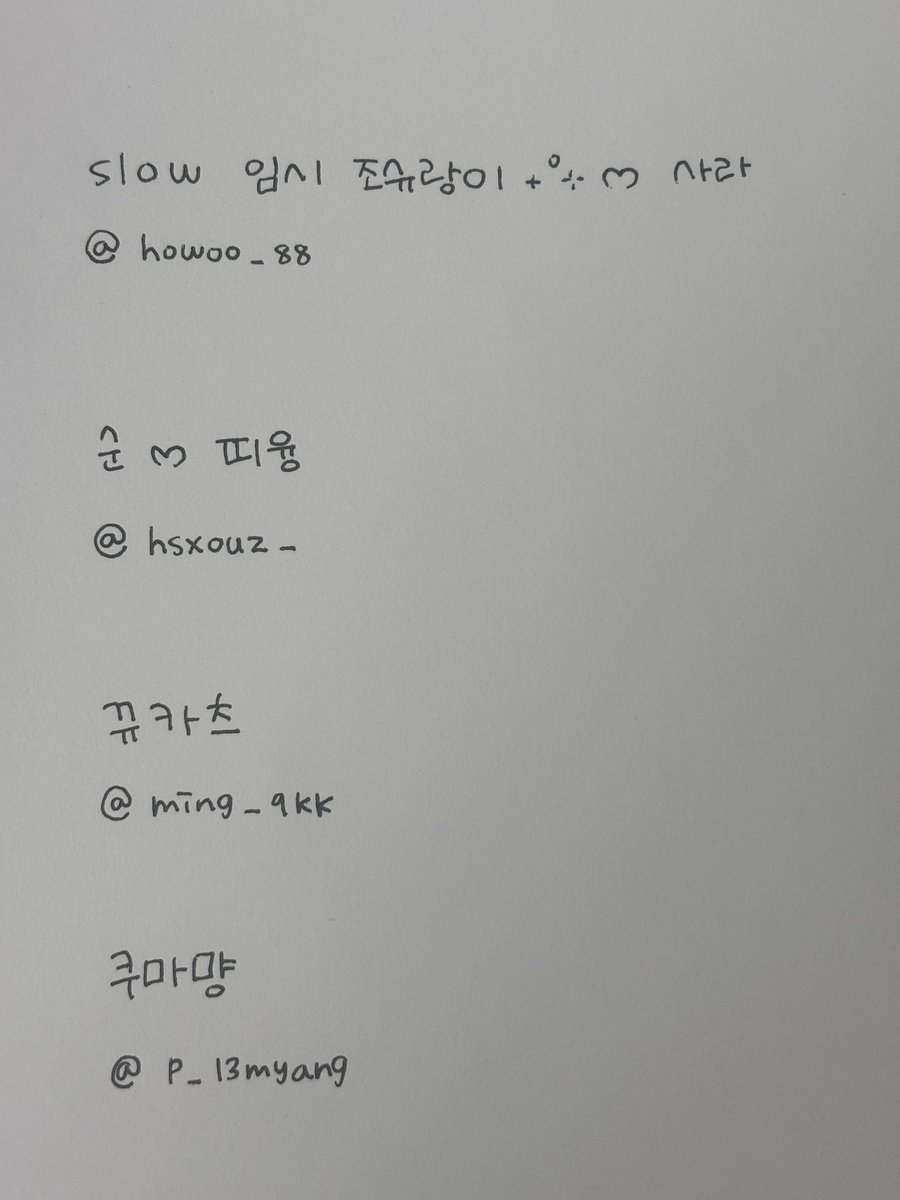 slow 임시 조슈랑이 ₊°⊹ ෆ 사라
@howoo_88
순 ෆ 띠융
@hsxouz_
뀨카츠
@mīng_9kk
쿠마먕
@p_13myang